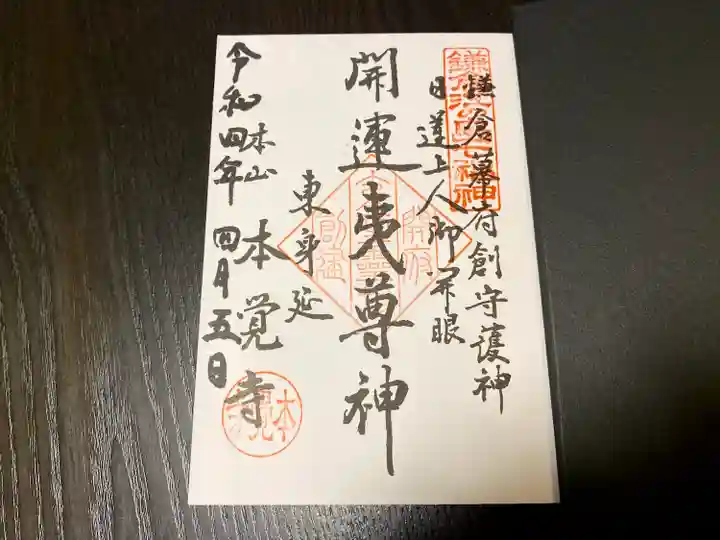 鎌倉幕府創守護神
日蓮上人御開眼
開運夷尊神
東身延
本山 本覚寺
令和四年四月五日
鎌倉江の島七福神
本覚寺